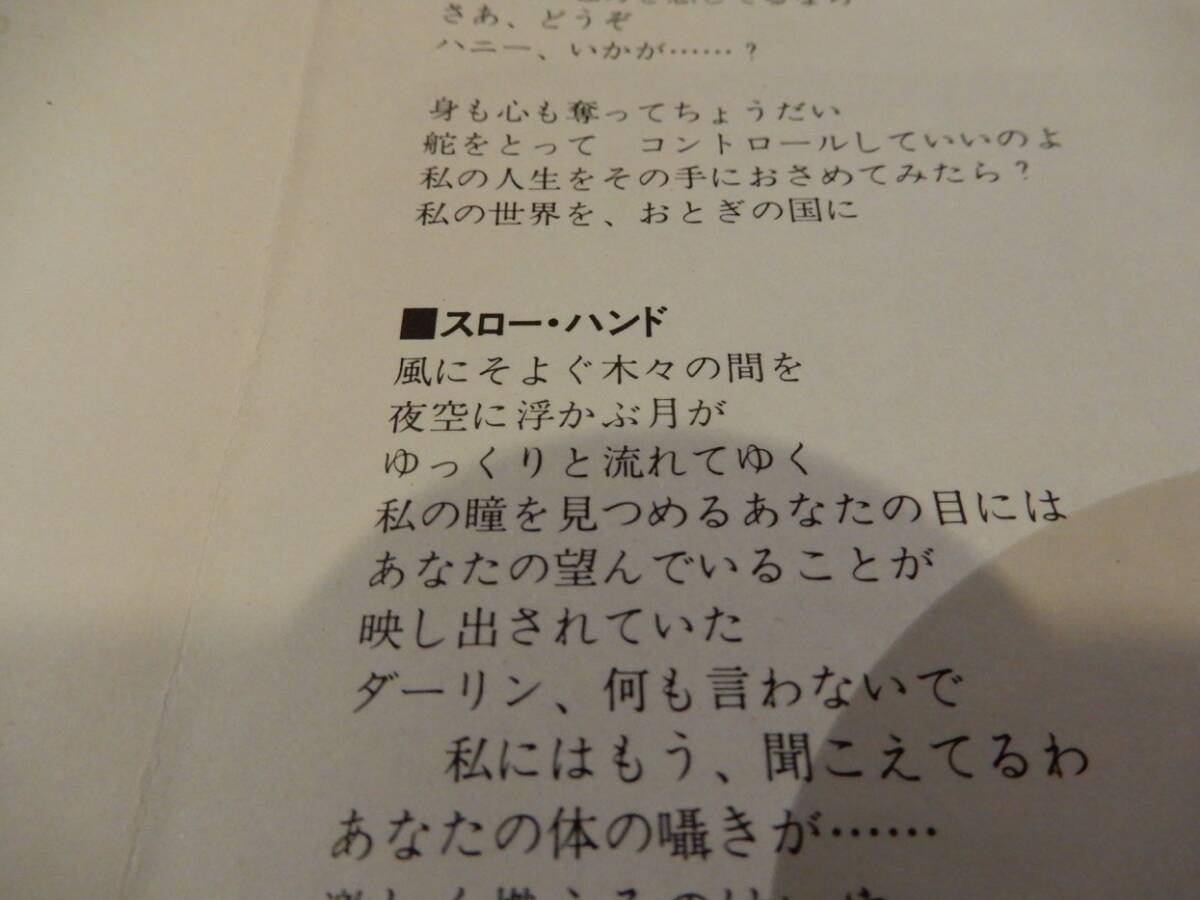 さあ、どうぞ
ハニー、いかが……?
身も心も奪ってちょうだい
舵をとって　コントロールしていいのよ
私の人生をその手におさめてみたら?
私の世界を、おとぎの国に
■スロー・ハンド
風にそよぐ木々の間を
夜空に浮かぶ月が
ゆっくりと流れてゆく
私の瞳を見つめるあなたの目には
あなたの望んでいることが
映し出されていた
ダーリン、何も言わないで
私にはもう、聞こえてるわ
あなたの体の囁きが……